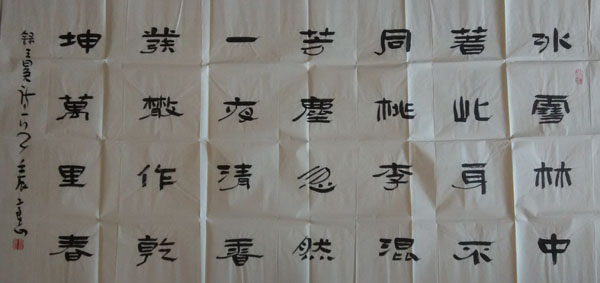 冰雪林中
著此身不
同桃李混
芳塵忽然
一夜清香
發散作乾
坤萬里春
錄王冕詩一首 壬辰